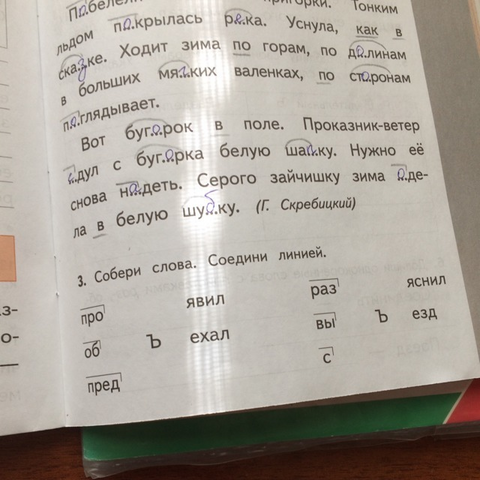 Тонким
льдом па.крылась ре.ка. Уснула, как в
сказ.ке. Ходит зима по горам, по до.линам
в больших мяг.ких валенках, по сто.ронам
по.глядывает.
Вот буго.рок в поле. Проказник-ветер
с.дул с буго.рка белую шап.ку. Нужно её
снова на.деть. Серого зайчишку зима о.де-
ла в белую шуб.ку. (Г. Скребицкий)
3. Собери слова. Соедини линией.
про явил раз яснил
об Ъ ехал вы Ъ езд
пред с